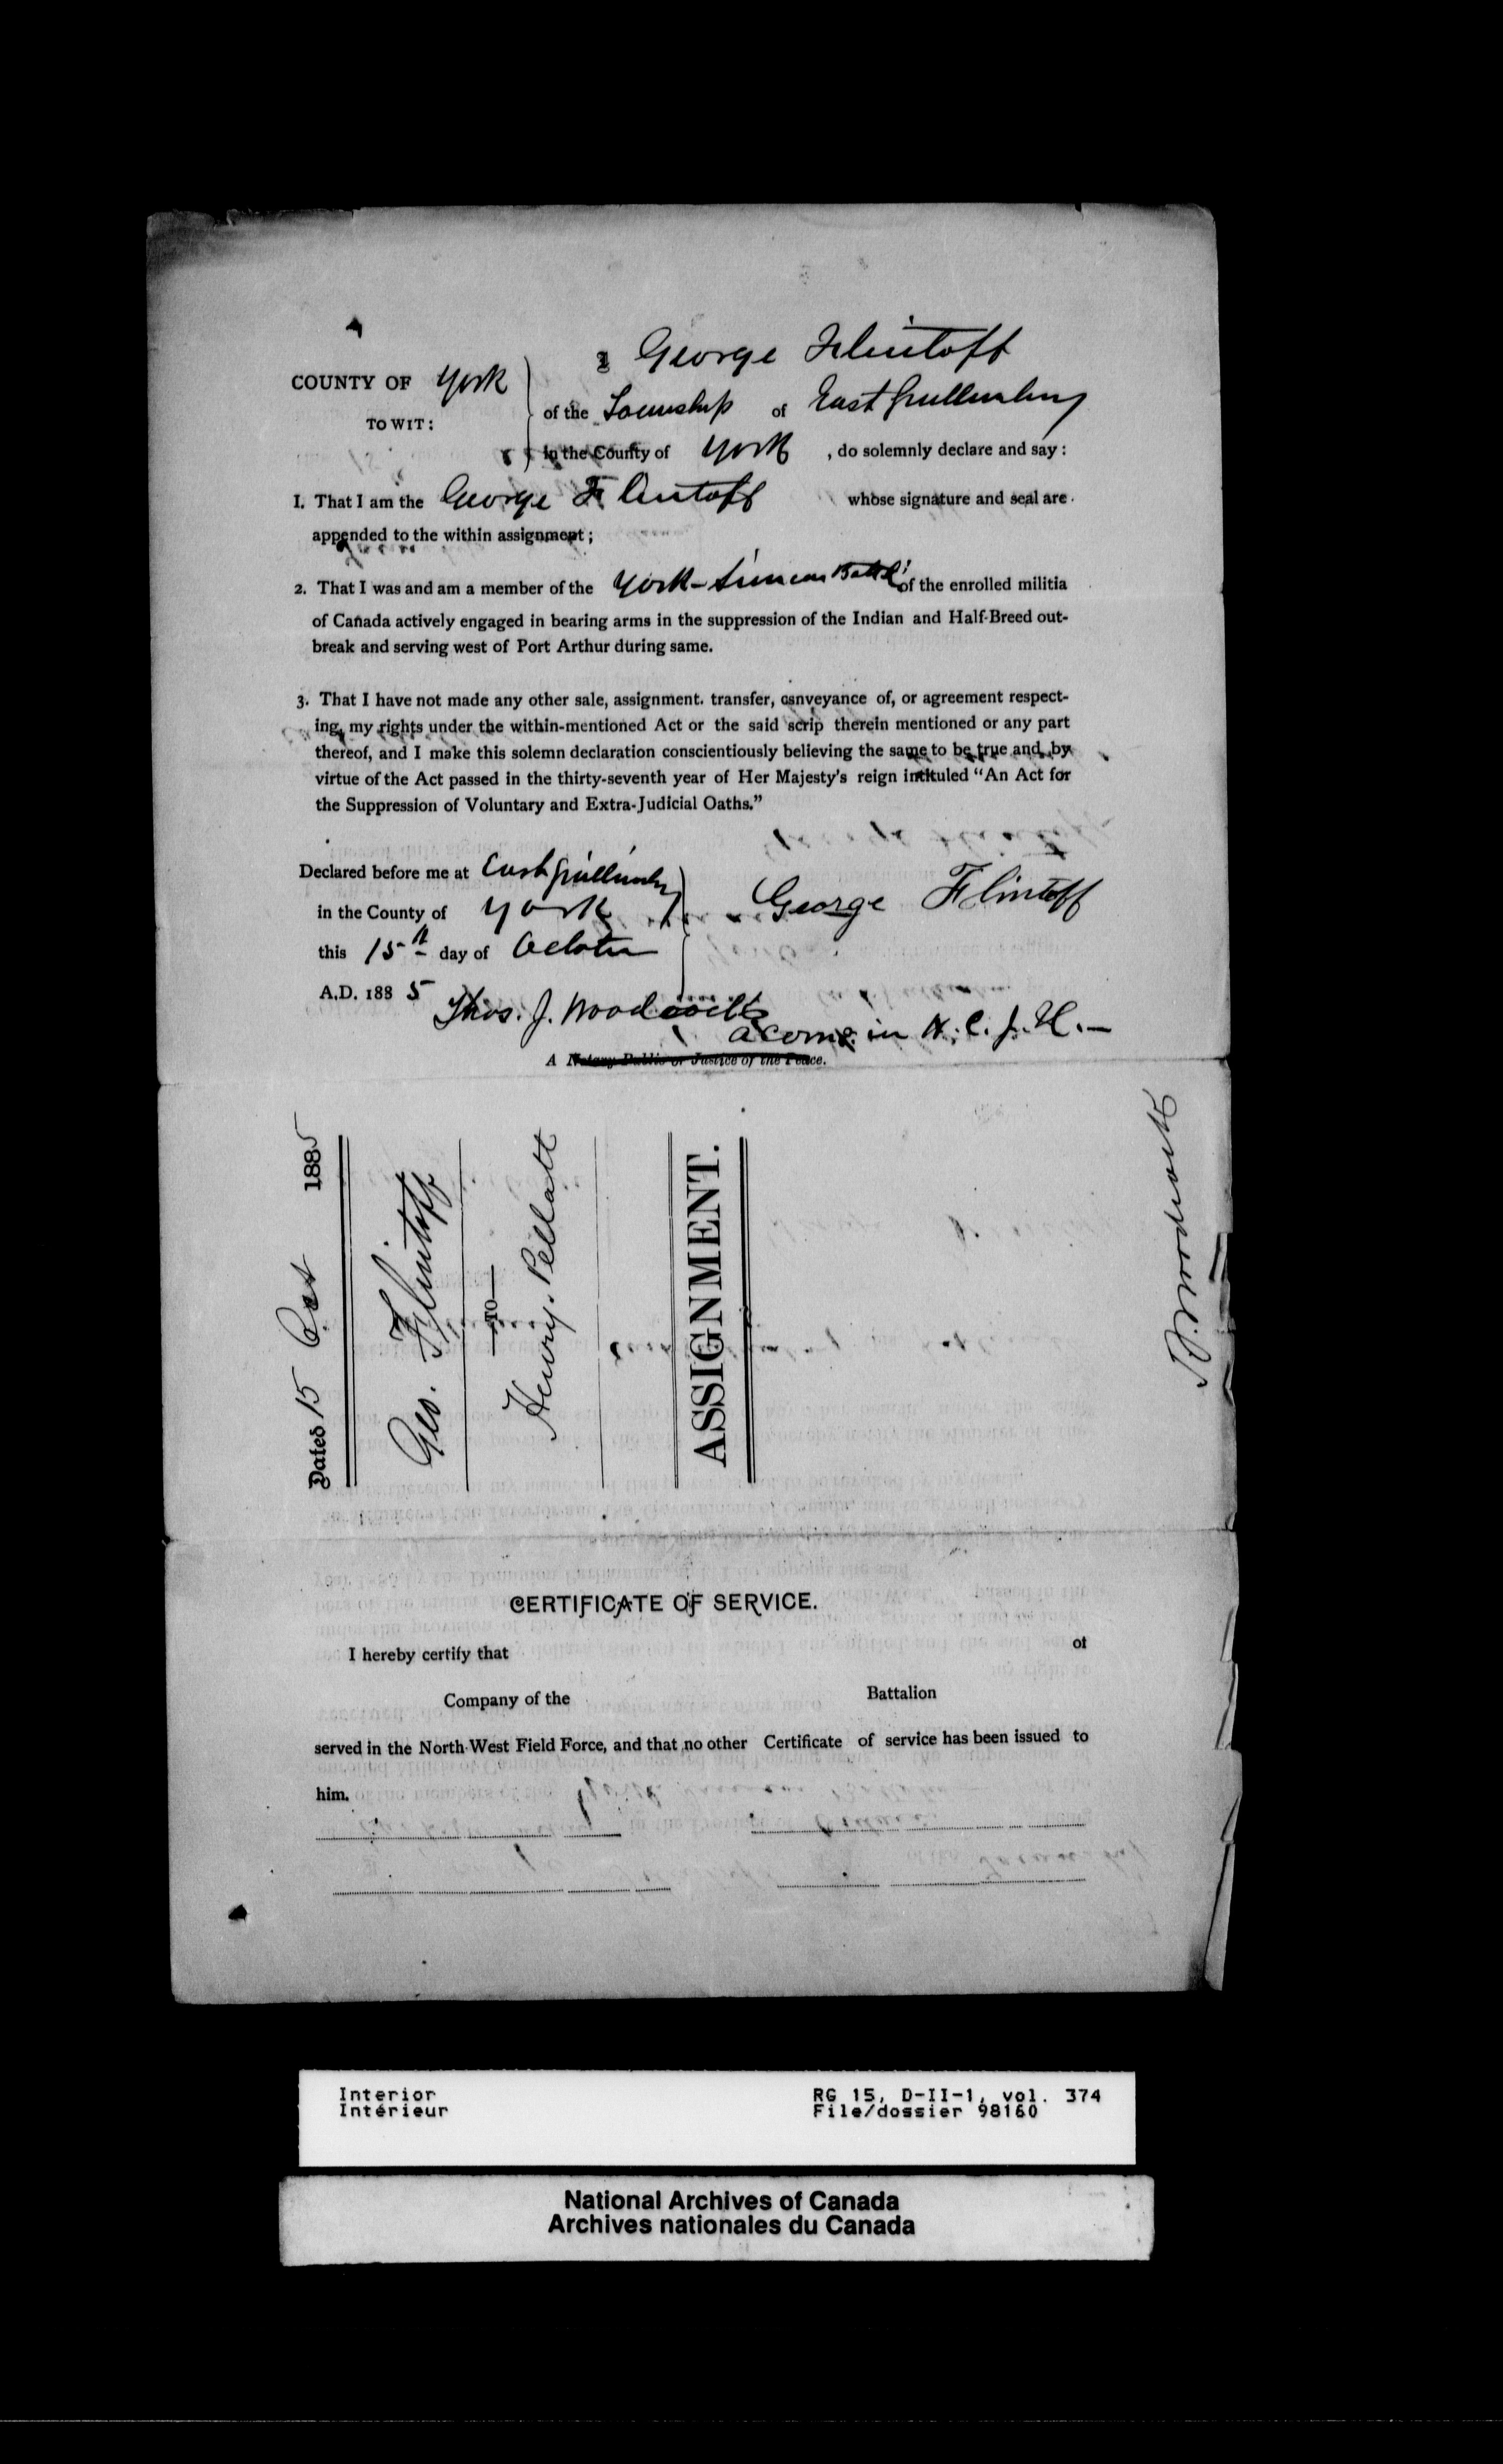 I George Flintoff
COUNTY OF York
of the Township of East Gwillimbury
TO WIT:
in the County of York, do solemnly declare and say:
1. That I am the George Flintoff whose signature and seal are
appended to the within assignment;
2. That I was and am a member of the York-Simcoe Battl of the enrolled militia
of Canada actively engaged in bearing arms in the suppression of the Indian and Half-Breed out-
break and serving west of Port Arthur during same.
3. That I have not made any other sale, assignment. transfer, conveyance of, or agreement respect-
ing, my rights under the within-mentioned Act or the said scrip therein mentioned or any part
thereof, and I make this solemn declaration conscientiously believing the same to be true and by
virtue of the Act passed in the thirty-seventh year of Her Majesty's reign intituled "An Act for
the Suppression of Voluntary and Extra-Judicial Oaths."
Declared before me at East Gwillimbury
in the County of York
George Flintoff
this 15th day of October
A.D. 1885
Thos. J. Woodcock
a Comr. in H.C.J. &c.
A Notary Public or Justice of the Peace.
Dated 15 Oct 1885
Geo. Flintoff
—TO—
Henry Pellatt
ASSIGNMENT.
CERTIFICATE OF SERVICE.
I hereby certify that of
Company of the Battalion
served in the North-West Field Force, and that no other Certificate of service has been issued to
him.
Interior RG 15, D-II-1, vol. 374
Intérieur File/dossier 98160
National Archives of Canada
Archives nationales du Canada